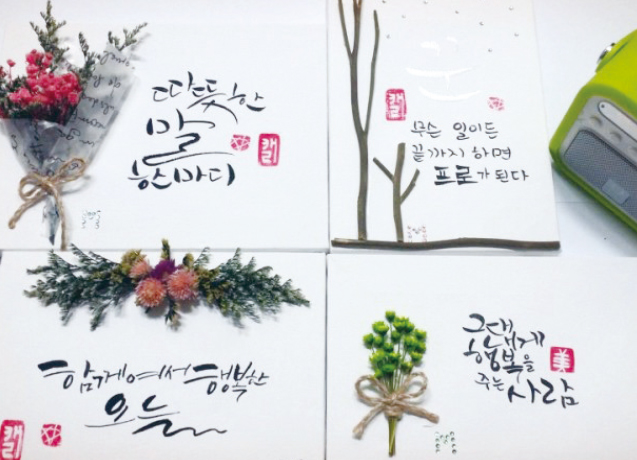 따뜻한
말
한마디
캘리
꿈
캘리
무슨 일이든
끝까지 하면
프로가 된다
함께여서 행복한
오늘
캘리
그대
내게
행복을
주는 사람
美